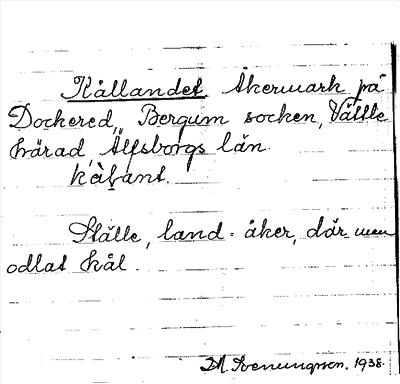 Kållandet. Åkermark på
Dockered, Bergum socken, Vättle
härad, Älfsborgs län.
kå̀ḷant.
Ställe, land - åker, där man
odlat kål.
M. Eveningsson. 1938.